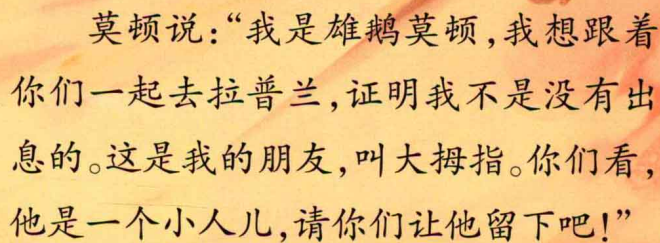 莫顿说:“我是雄鹅莫顿,我想跟着
你们一起去拉普兰,证明我不是没有出
息的。这是我的朋友,叫大拇指。你们看,
他是一个小人儿,请你们让他留下吧!”